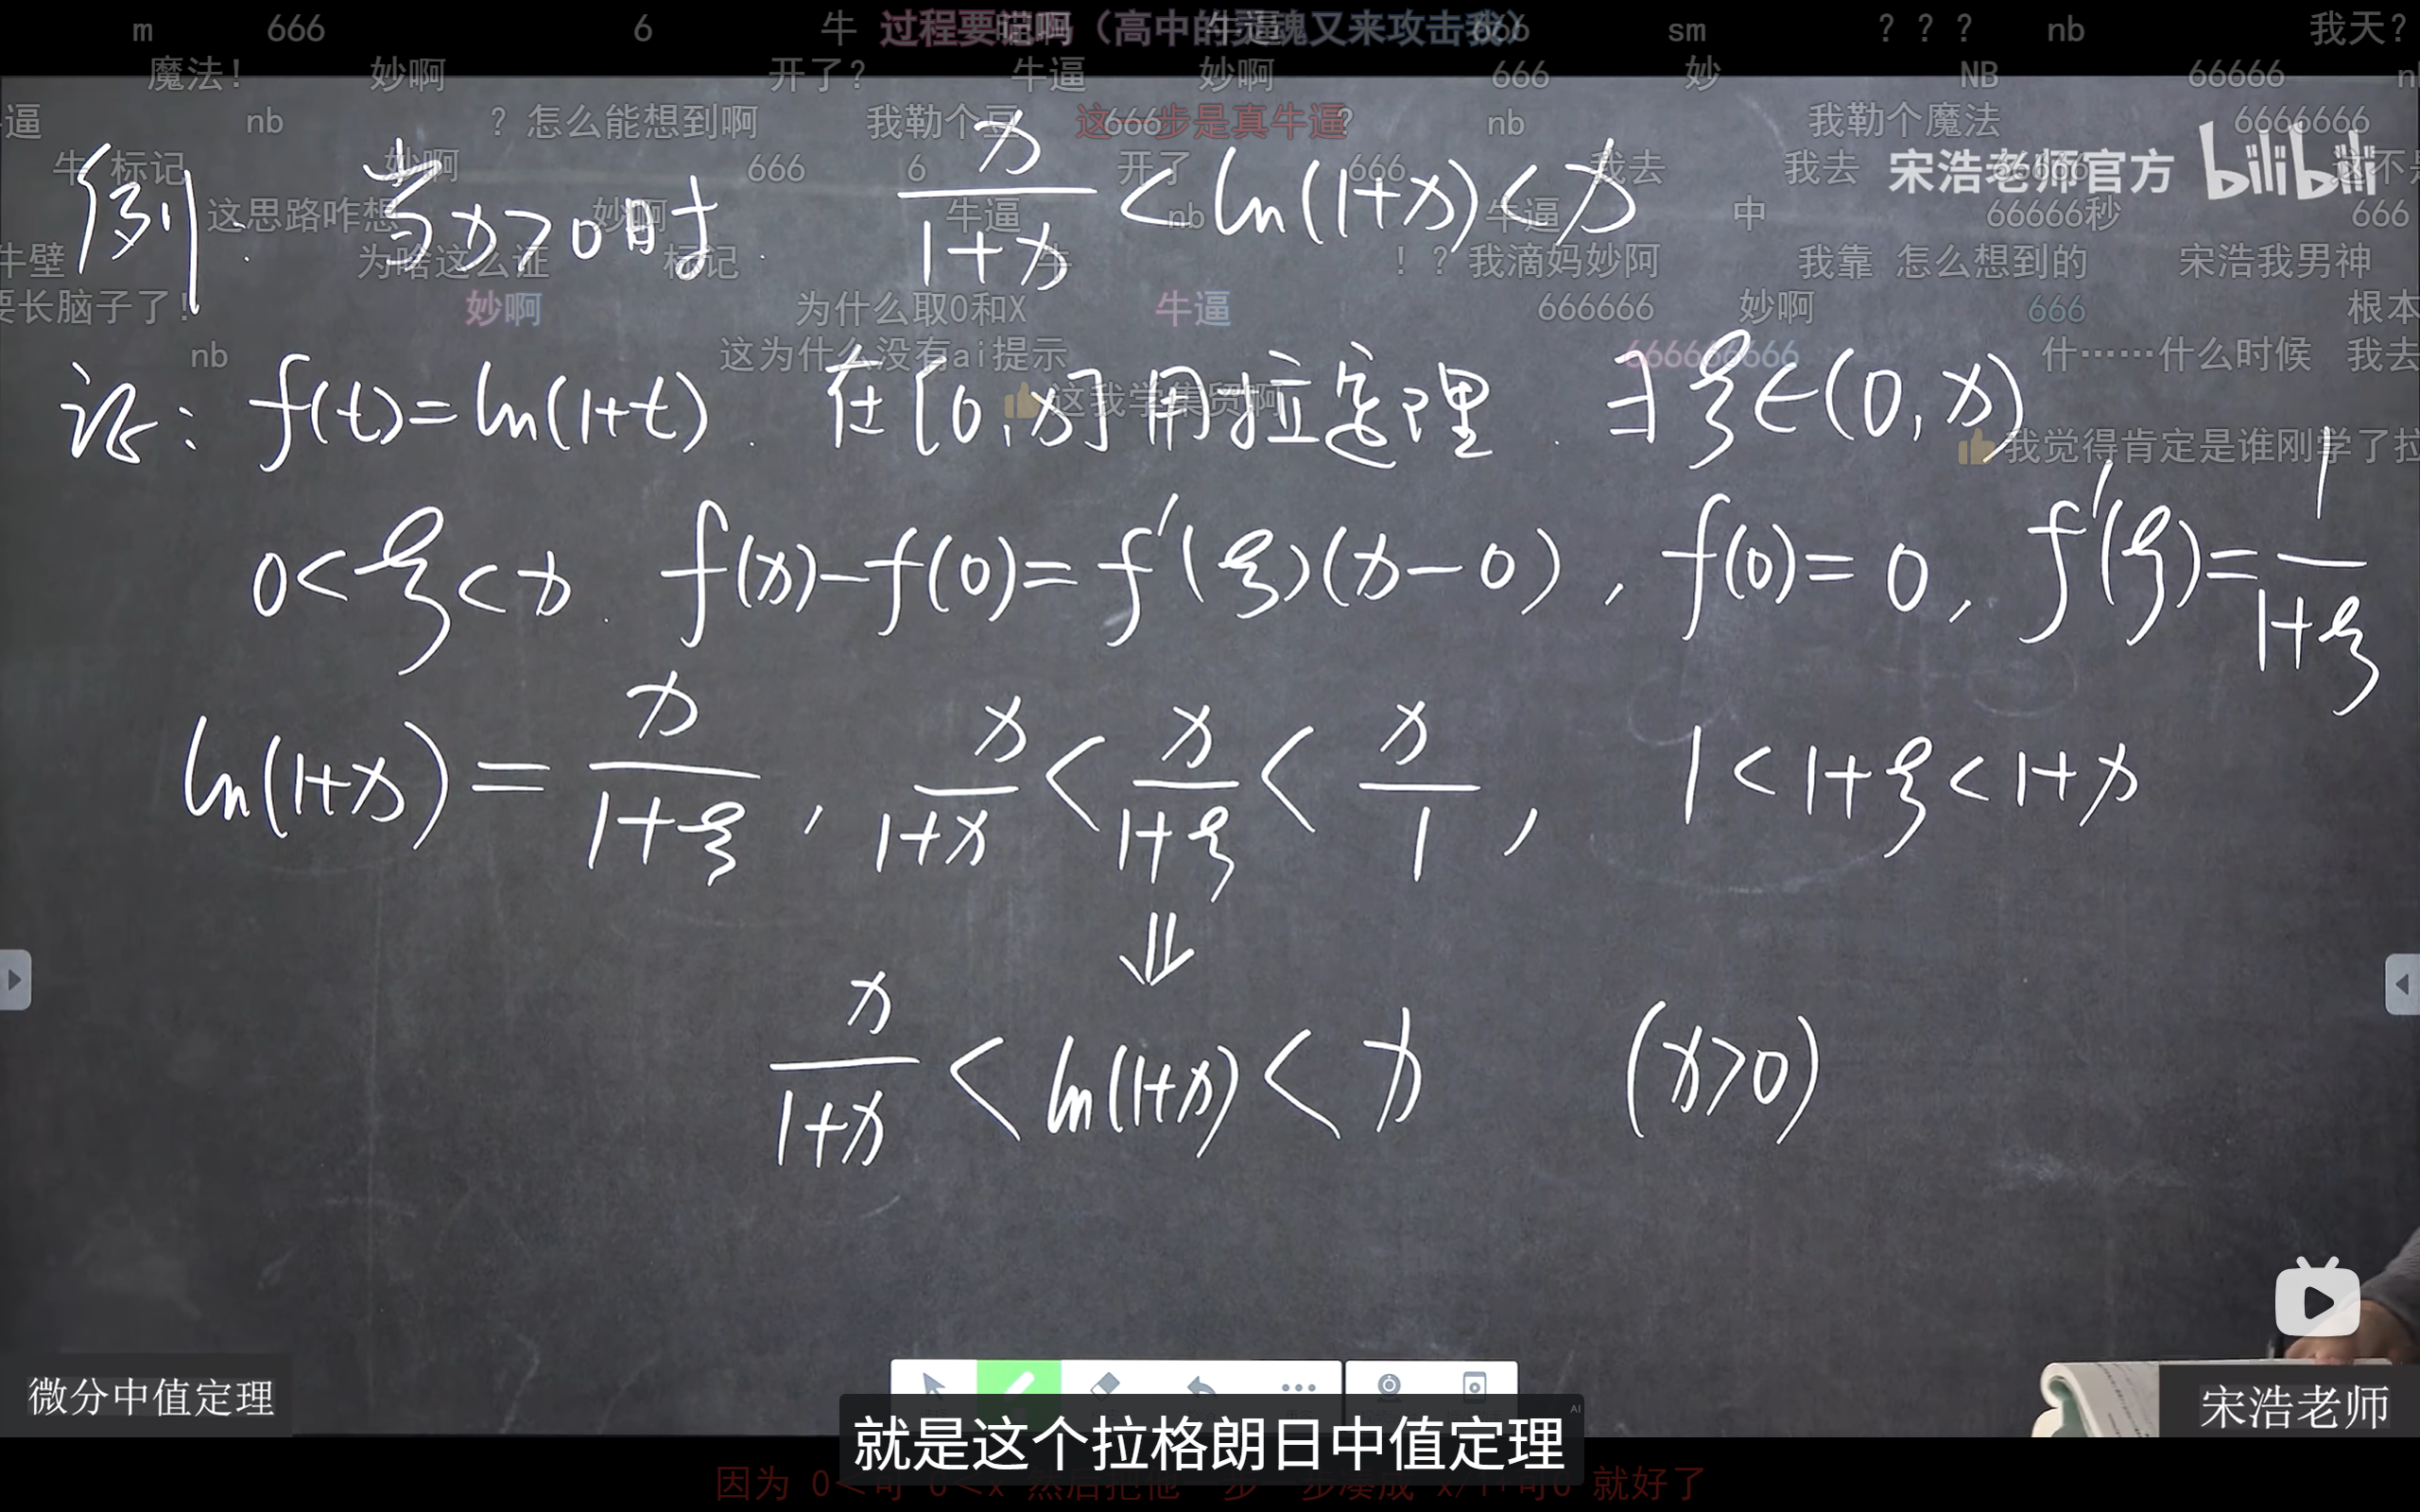 m 666 6 牛 过程要 (高中的 魂又来攻击我) sm ？？？ nb 我天？
魔法！ 妙啊 开了？ 牛逼 妙啊 666 妙 NB 66666
逼 nb ？怎么能想到啊 我勒个 这一步是真牛逼 nb 我勒个魔法 6666666
牛 标记 妙啊 666 6 开了 666 我去 我去
宋浩老师官方 bilibili
这思路咋想 妙啊 牛逼 nb 牛逼 中 66666秒 666
例: 当x>0时. x/(1+x) < ln(1+x) < x
牛壁 为啥这么证 标记 ！？我滴妈妙阿 我靠 怎么想到的 宋浩我男神
要长脑子了！ 妙啊 为什么取0和X 牛逼 666666 妙啊 666 根本
nb 这为什么没有ai提示 666666666 什……什么时候 我去
这我学集贸啊
证: f(t)=ln(1+t). 在[0,x]用拉定理. ∃ξ∈(0,x)
我觉得肯定是谁刚学了拉
0<ξ<x. f(x)-f(0)=f′(ξ)(x-0), f(0)=0, f′(ξ)=1/(1+ξ)
ln(1+x)=x/(1+ξ), x/(1+x)<x/(1+ξ)<x/1, 1<1+ξ<1+x
⇓
x/(1+x)<ln(1+x)<x (x>0)
微分中值定理
宋浩老师
AI
就是这个拉格朗日中值定理
因为 就好了